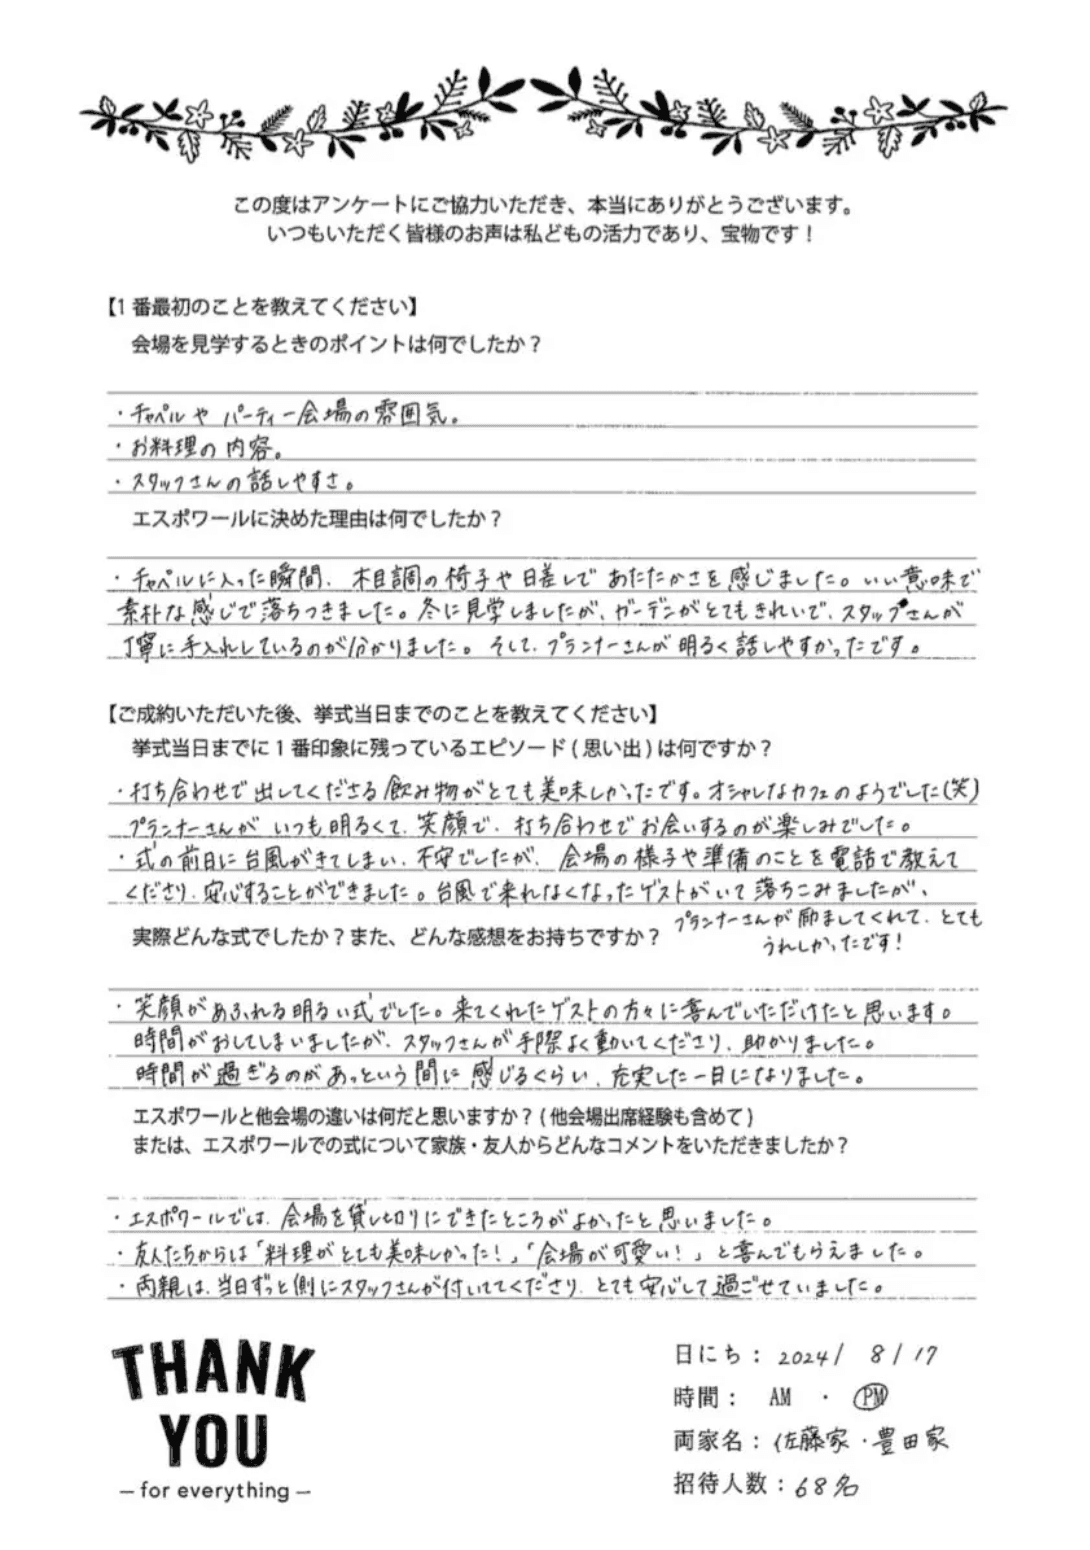 この度はアンケートにご協力いただき、本当にありがとうございます。
いつもいただく皆様のお声は私どもの活力であり、宝物です！
【1番最初のことを教えてください】
会場を見学するときのポイントは何でしたか？
・チャペルや パーティー会場の雰囲気。
・お料理の内容。
・スタッフさんの話しやすさ。
エスポワールに決めた理由は何でしたか？
・チャペルに入った瞬間、木目調の椅子や日差しで あたたかさを感じました。いい意味で
素朴な感じで落ちつきました。冬に見学しましたが、ガーデンがとてもきれいで、スタッフさんが
丁寧に手入れしているのが分かりました。そして、プランナーさんが明るく話しやすかったです。
【ご成約いただいた後、挙式当日までのことを教えてください】
挙式当日までに1番印象に残っているエピソード(思い出)は何ですか？
・打ち合わせで出してくださる飲み物がとても美味しかったです。オシャレなカフェのようでした(笑)
プランナーさんが いつも明るくて、笑顔で、打ち合わせでお会いするのが楽しみでした。
・式の前日に台風がきてしまい、不安でしたが、会場の様子や準備のことを電話で教えて
くださり、安心することができました。台風で来れなくなったゲストがいて落ちこみましたが、
プランナーさんが励ましてくれて、とても
うれしかったです！
実際どんな式でしたか？また、どんな感想をお持ちですか？
・笑顔があふれる明るい式でした。来てくれたゲストの方々に喜んでいただけたと思います。
時間がおしてしまいましたが、スタッフさんが手際よく動いてくださり、助かりました。
時間が過ぎるのがあっという間に感じるくらい、充実した一日になりました。
エスポワールと他会場の違いは何だと思いますか？(他会場出席経験も含めて)
または、エスポワールでの式について家族・友人からどんなコメントをいただきましたか？
・エスポワールでは、会場を貸し切りにできたところがよかったと思いました。
・友人たちからは「料理がとても美味しかった！」「会場が可愛い！」と喜んでもらえました。
・両親は、当日ずっと側にスタッフさんが付いててくださり、とても安心して過ごせていました。
THANK
YOU
— for everything —
日にち： 2024/ 8/17
時間： AM ・ PM
両家名：佐藤家・豊田家
招待人数：68名